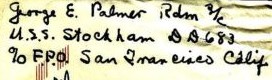 George E. Palmer Rdm 3/c
U.S.S. Stockham DD 683
% F.P.O. San Francisco Calif.